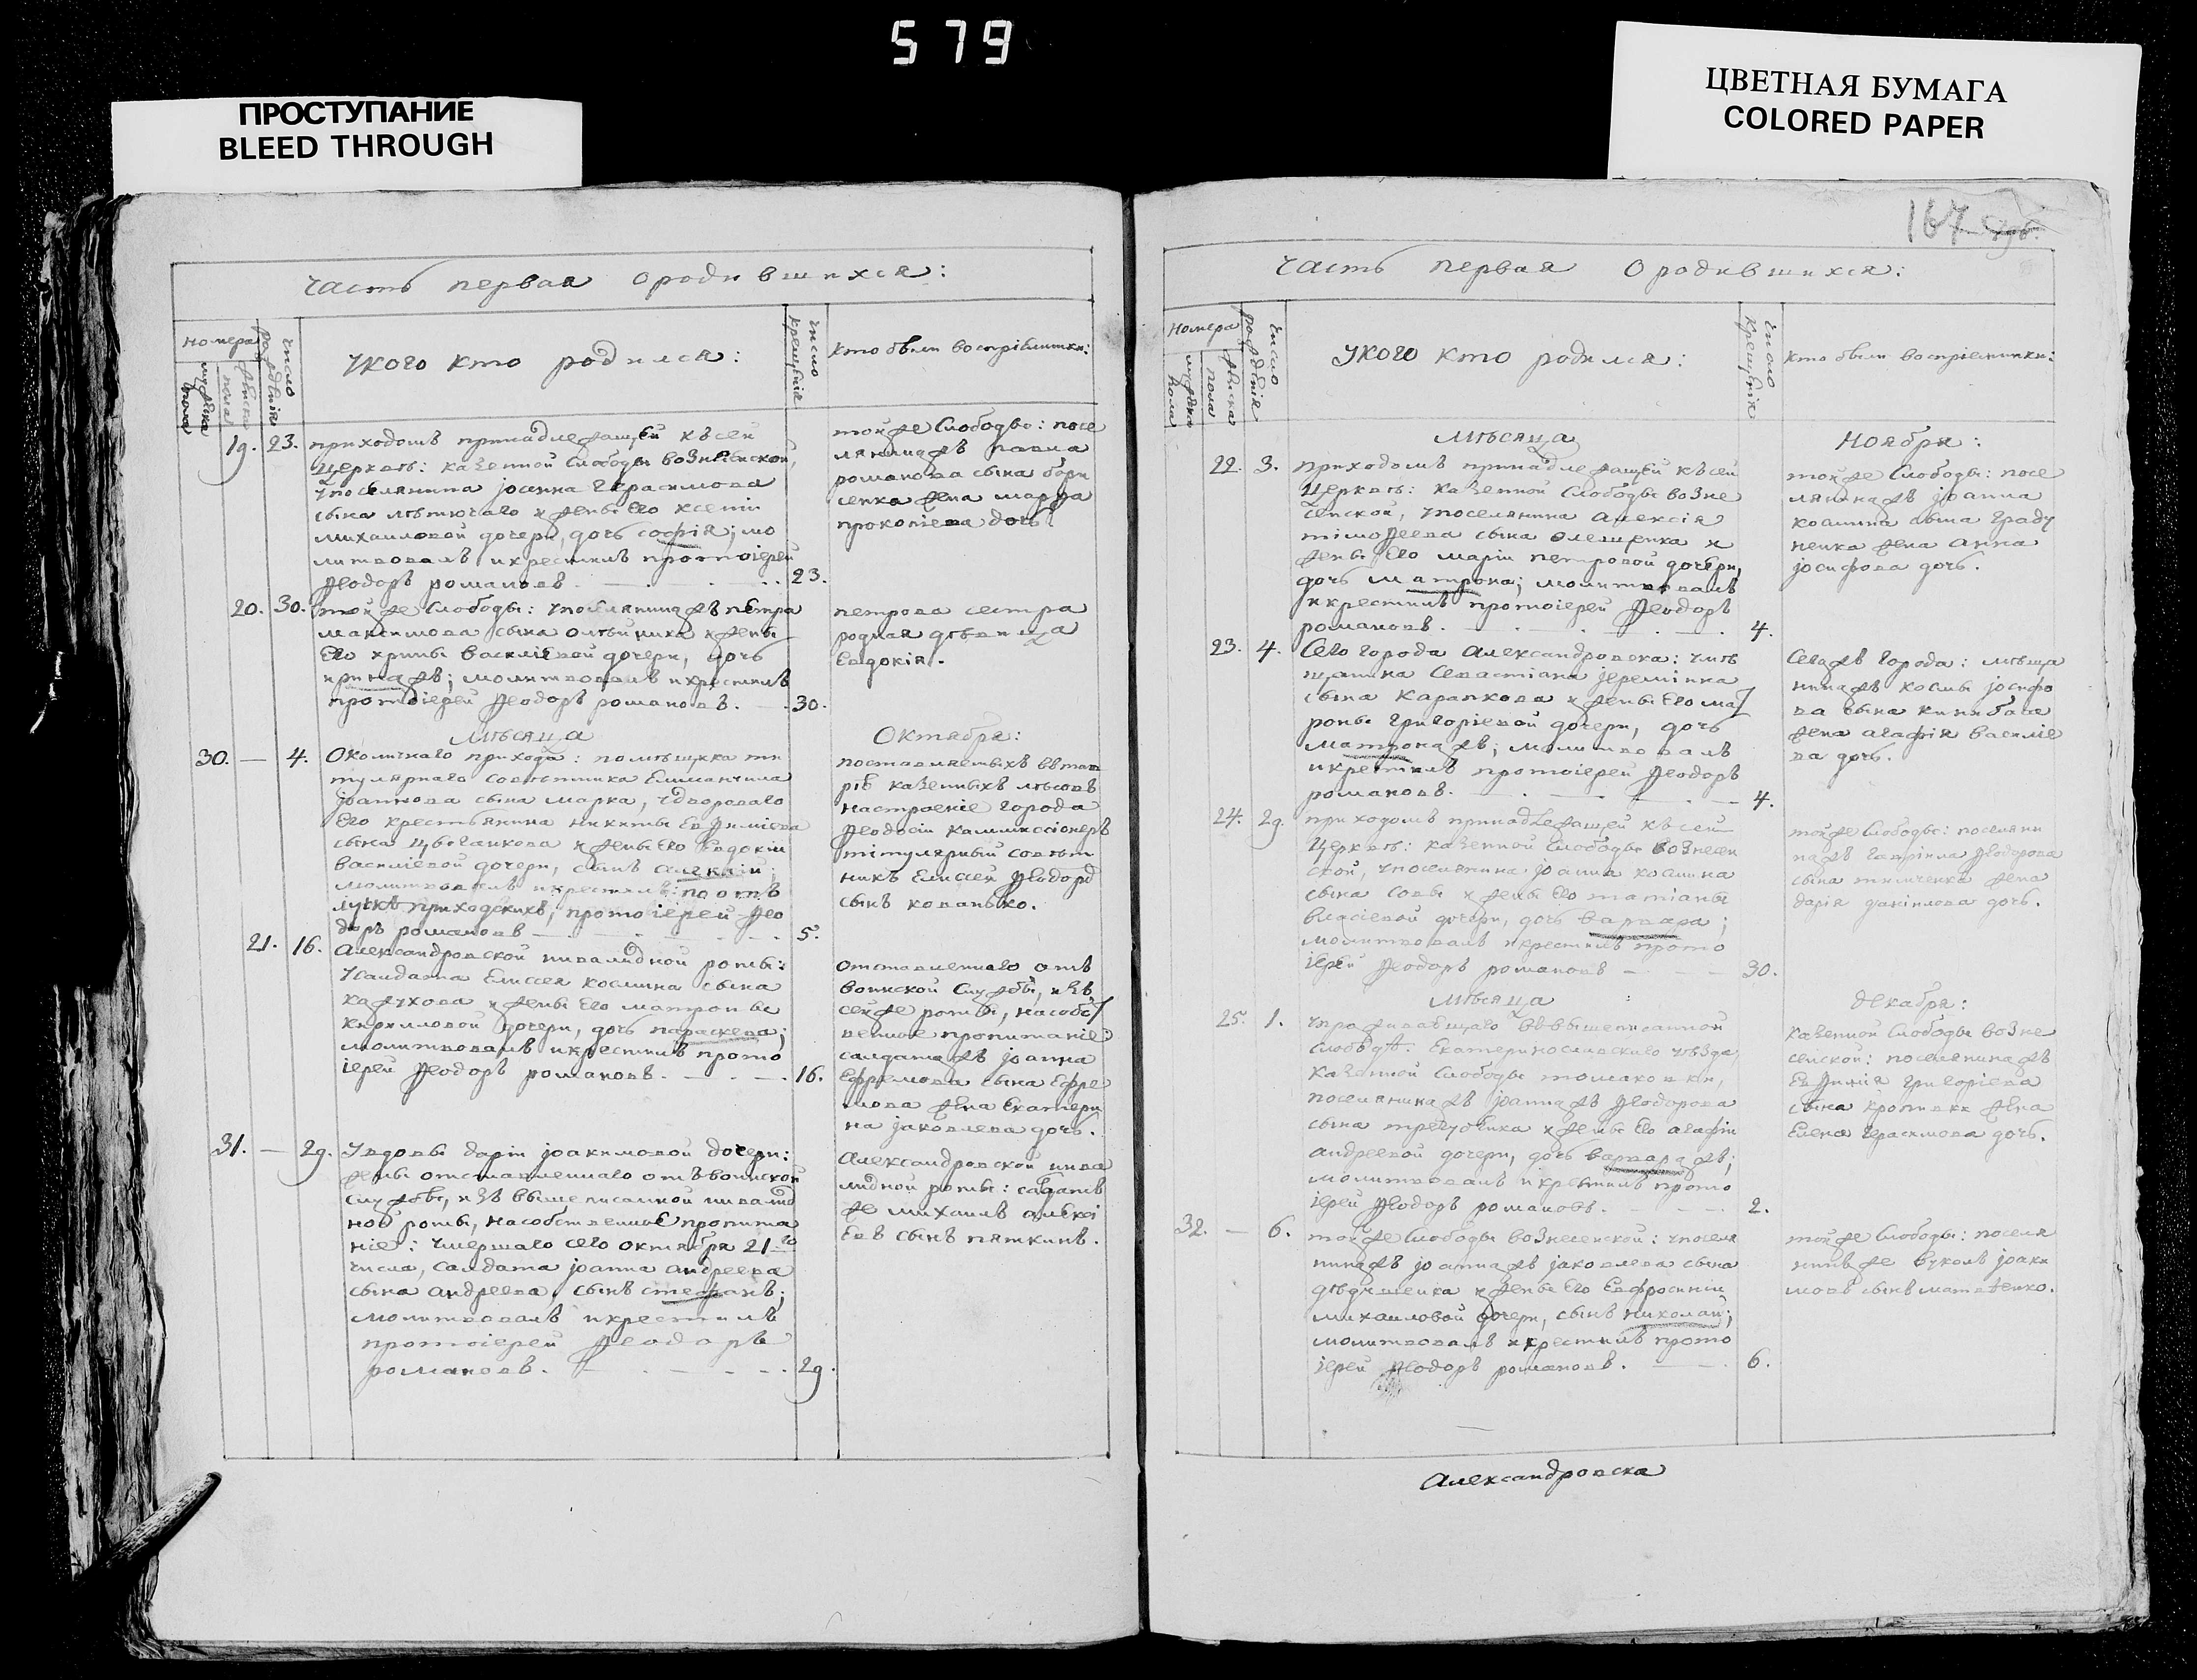 579
ПРОСТУПАНИЕ
BLEED THROUGH
ЦВЕТНАЯ БУМАГА
COLORED PAPER
часть первая о родившихся:
номера
мужска пола
женска пола
число рождѣнія
укого кто родился:
число крещѣнія
кто были воспріѣмники:
19. 23. приходомъ принадлежащѣй къ сей
церквѣ: казенной слободы вознесенской,
упоселянина
сына его ксеніи
михаиловой дочери, дочь софія; мо
литвовалъ и крестилъ протоіерей
Ѳеодоръ романовъ. 23.
той же слободы: посе
лянина жъ павла
романова сына бори
сенка жена марѳа
прокопіева дочь
20. 30. той же слободы: упоселянина жъ петра
максимова сына олѣйника и жены
его ирины василіевой дочери, дочь
ирина жъ; молитвовалъ и крестилъ
протоіерей Ѳеодоръ романовъ. 30.
петрова сестра
родная дѣвица
Евдокія.
мѣсяца Октября:
30. — 4. Околичнаго прихода: помѣщика ти
тулярнаго совѣтника
іоаннова сына марка, удвороваго
его крестьянина никиты Евѳиміева
сына и жены его Евдокіи
василіевой дочери, сынъ алексій;
молитвовалъ и крестилъ: по отъ
лучкѣ приходскихъ, протоіерей Ѳео
доръ романовъ 5.
казенныхъ лѣсовъ
на строеніе города
Ѳеодосіи коммиссіонеръ
титулярный совѣт
никъ Елисей Ѳеодоро
сынъ кованько.
21. 16. Александровской инвалидной роты:
усалдата Елисея космина сына
кажухова и жены его матроны
кириловой дочери, дочь параскева;
молитвовалъ и крестилъ прото
іерей Ѳеодоръ романовъ. 16.
отставленнаго отъ
воинской службы, изъ
сей же роты, на собст
венное пропитаніе:
салдата жъ іоанна
Ефремова сына Ефре
мова жена Екатери
на іаковлева дочь.
31. — 29. увдовы даріи іоакимовой дочери:
жены отставленнаго отъ воинской
службы, изъ вышеписанной инвалид
ной роты, на собственное пропита
ніе: умершаго сего октября 21го
числа, салдата іоанна андреева
сына андреева, сынъ стефанъ;
молитвовалъ и крестилъ
протоіерей Ѳеодоръ
романовъ. 29.
Александровской инва
лидной роты: салдатъ
же михаилъ алексі
евъ сынъ пяткинъ.
167
часть первая о родившихся:
номера
мужска пола
женска пола
число рождѣнія
укого кто родился:
число крещѣнія
кто были воспріѣмники:
мѣсяца Ноября:
22. 3. приходомъ принадлежащей къ сей
церквѣ: казенной слободы возне
сенской, упоселянина алексія
тимоѳеева сына олещенка и
жены его маріи петровой дочери,
дочь матрона; молитвовалъ
и крестилъ протоіерей Ѳеодоръ
романовъ. 4.
той же слободы: посе
лянина жъ іоанна
космина сына граду
ненка жена анна
іосифова дочь.
23. 4. Сего города александровска: умѣ
щанина севастіана іереміина
сына карапкова и жены его мат
роны григоріевой дочери, дочь
матрона жъ; молитвовалъ
и крестилъ протоіерей Ѳеодоръ
романовъ. 4.
сего жъ города: мѣща
нина жъ космы іосифо
ва сына
жена агафія василіе
ва дочь.
24. 29. приходомъ принадлежащей къ сей
церквѣ: казенной слободы вознесен
ской, упоселянина іоанна космина
сына совы и жены его татіаны
власіевой дочери, дочь варвара;
молитвовалъ и крестилъ прото
іерей Ѳеодоръ романовъ 30.
той же слободы: поселяни
на жъ гавріила Ѳеодорова
сына жена
дарія даніилова дочь.
мѣсяца декабря:
25. 1. упроживавщаго в вышеписанной
слободѣ: Екатеринославскаго уѣзда,
казенной слободы томаковки,
поселянина жъ іоанна жъ Ѳеодорова
сына и жены его агафіи
андреевой дочери, дочь варвара жъ;
молитвовалъ и крестилъ прото
іерей Ѳеодоръ романовъ. 2.
казенной слободы возне
сенской: поселянина жъ
Евѳимія григоріева
сына жена
Елена герасимова дочь.
32. — 6. той же слободы вознесенской: упоселя
нина жъ іоанна жъ іаковлева сына
дѣдушенка и жены его Евфросиніи
михаиловой дочери, сынъ николай;
молитвовалъ и крестилъ прото
іерей Ѳеодоръ романовъ. 6.
той же слободы: поселя
нинъ же вуколъ іоаки
мовъ сынъ матвѣенко.
Александровска